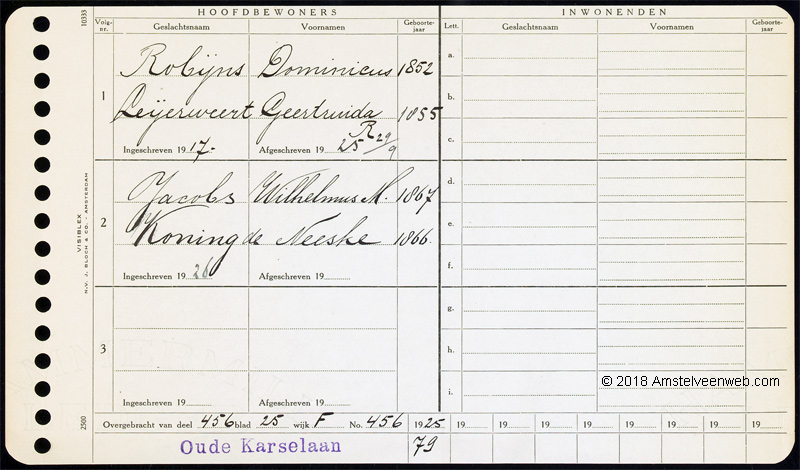 HOOFDBEWONERS INWONENDEN
10333 Volg-nr. Geslachtsnaam Voornamen Geboorte-jaar Lett. Geslachtsnaam Voornamen Geboorte-jaar
1
Robijns Dominicus 1852
Leijerweert Geertruida 1855
R 29/9
Ingeschreven 1917- Afgeschreven 1925
2
Jacobs Wilhelmus M. 1867
Koning de Neeske 1866.
Ingeschreven 1926 Afgeschreven 19
3
Ingeschreven 19 Afgeschreven 19
a.
b.
c.
d.
e.
f.
g.
h.
i.
VISIBLEX
N.V. J. BLOCH & CO. - AMSTERDAM
2500
© 2018 Amstelveenweb.com
Overgebracht van deel 456 blad 25 wijk F No. 456 1925 19 19 19 19 19 19 19
Oude Karselaan 79